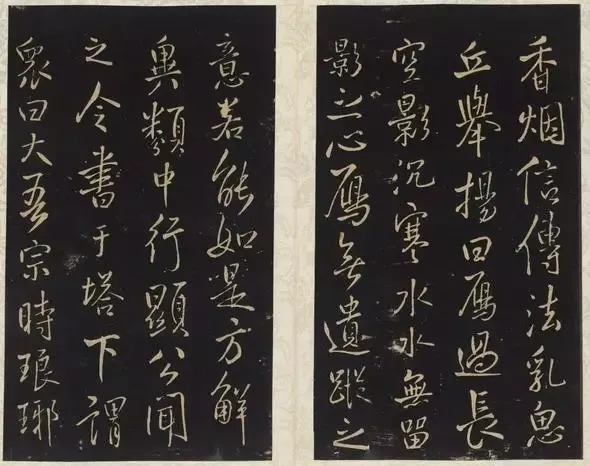 香烟信傳法乳惠
丘舉揚曰鴈過長
空影沉寒水水無留
影之心鴈無遺蹤之
意若能如是方解
異類中行顯公聞
之令書于塔下謂
眾曰大吾宗時琅琊